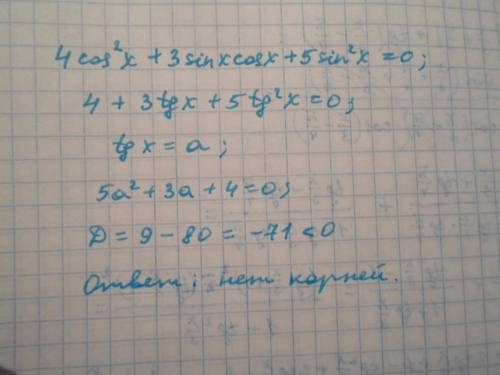 4cos²x + 3sinxcosx + 5sin²x = 0;
4 + 3tgx + 5tg²x = 0;
tgx = a;
5a² + 3a + 4 = 0;
D = 9 - 80 = -71 < 0
Ответ: нет корней.